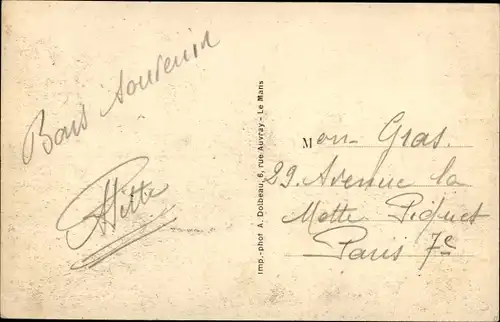 Bons Souvenir
Imp.-phot A. Dolbeau, 6, rue Auvray - Le Mans
Mon Gras.
29. Avenue la
Motte Piquet
Paris 7e